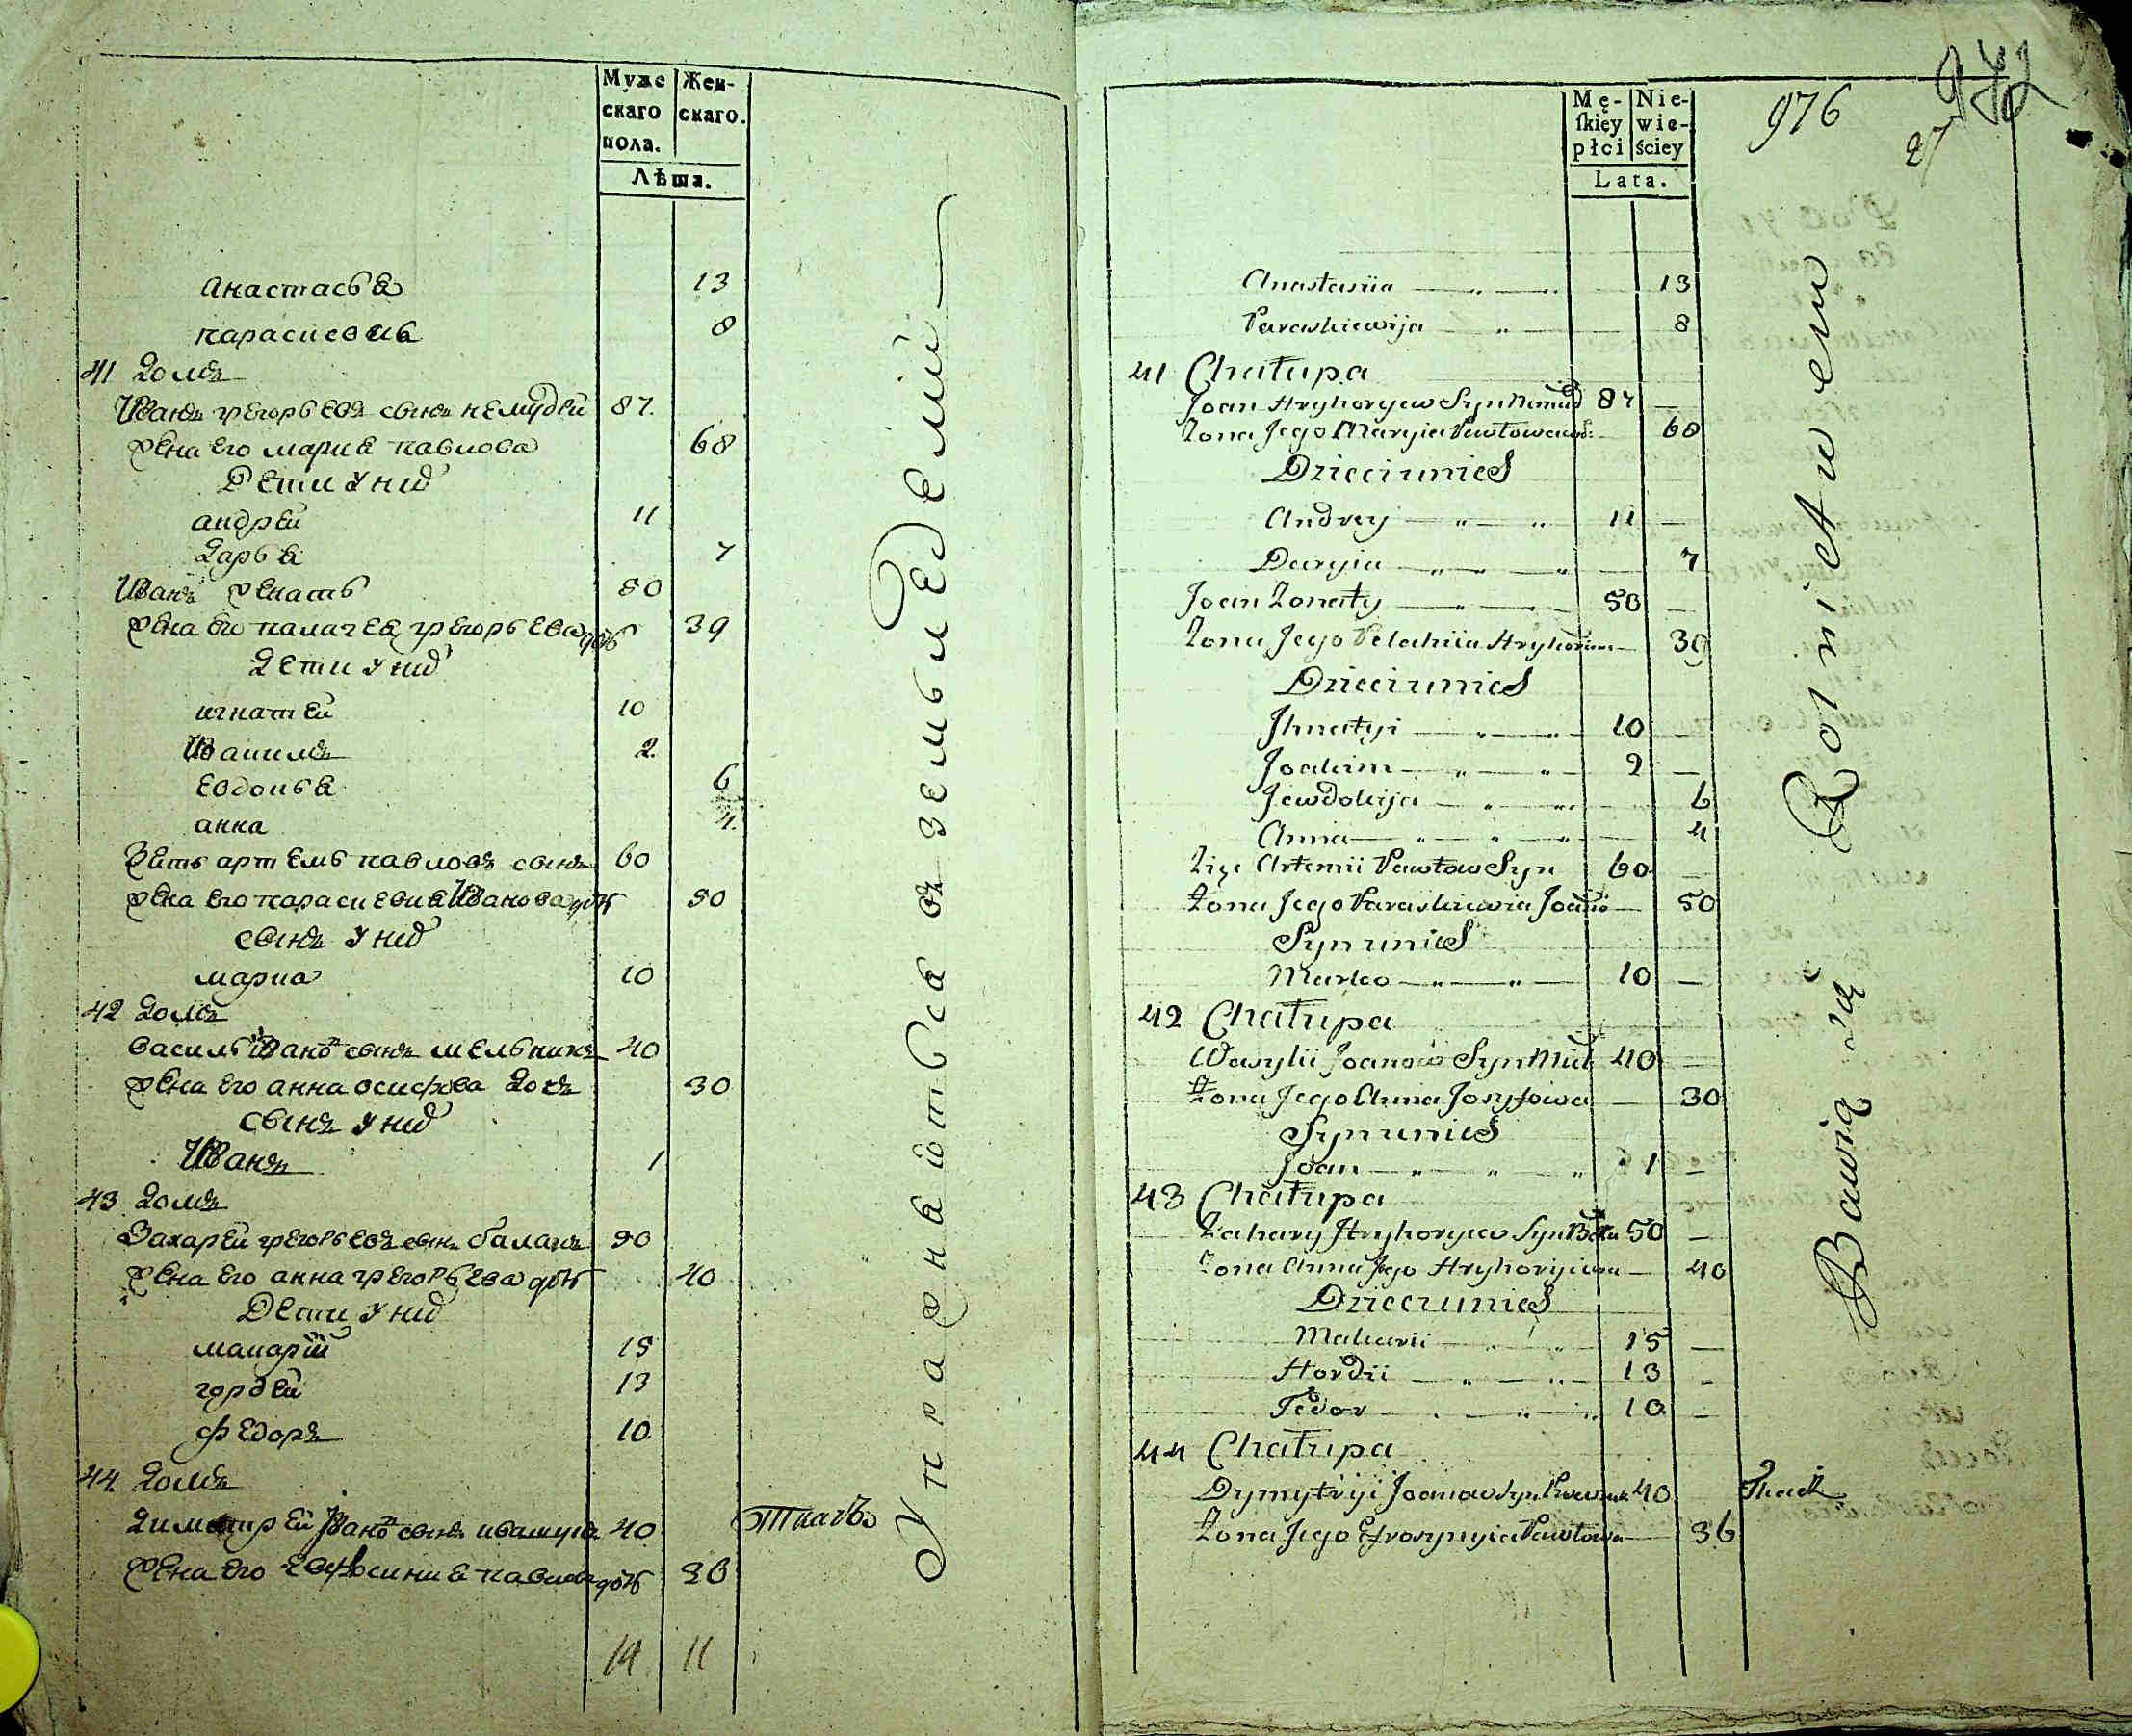 Муже Жен-
скаго скаго.
пола.
Лѣта.
Анастасья 13
Парасковья 8
41 Домъ
Иванъ грегорьевъ сынъ немудрей 87
жена его мария павлова 68
Дети у них
андрей 11
Дарья 7
Иванъ женатъ 50
жена его палагея грегорьева дочь 39
Дети у них
игнатей 10
Иакимъ 2
евдокья 6
анна 4
Зять артемь павловъ сынъ 60
жена его параскевия Иванова дочь 50
сынъ у них
марко 10
42 Домъ
василь Иановъ сынъ мельникъ 40
жена его анна осифова дочь 30
сынъ у них
Иванъ 1
43 Домъ
Захарей грегорьевъ сынъ 50
жена его анна грегорьева дочь 40
Дети у них
макарій 15
гордей 13
федоръ 10
44 Домъ
Димитрей Ивановъ сынъ 40 Ткачъ
жена его евфросиния павлова дочь 36
14 11
Упражняютъся въ земьледелий
Mę- Nie-
skiey wie-
płci ściey
Lata.
976
27
972
Anastasiia 13
Paraskiewija 8
41 Chałupa
Joan Hryhoryew Syn 87
Żona Jego Maryia Pawłowa 68
Dzieci u nich
Andrey 11
Daryia 7
Joan Żonaty 50
Żona Jego Pelahiia Hryhoriewa 39
Dzieci u nich
Jhnatyi 10
Joakim 2
Jewdokija 6
Anna 4
Zięć Artemii Pawłow Syn 60
Żona Jego Paraskiewia 50
Syn u nich
Marko 10
42 Chałupa
Wasylii Joanow Syn Miel 40
Żona Jego Anna Josyfowa 30
Syn u nich
Joan 1
43 Chałupa
Zahary Hryhoryew Syn 50
Żona Anna Jego Hryhoryiewa 40
Dzieci u nich
Makarii 15
Hordii 13
Fedor 10
44 Chałupa
Dymytryi Joanow Syn 40 Tkacz
Żona Jego Efrosynyia Pawłowa 36
Bawią się Rolnictwem